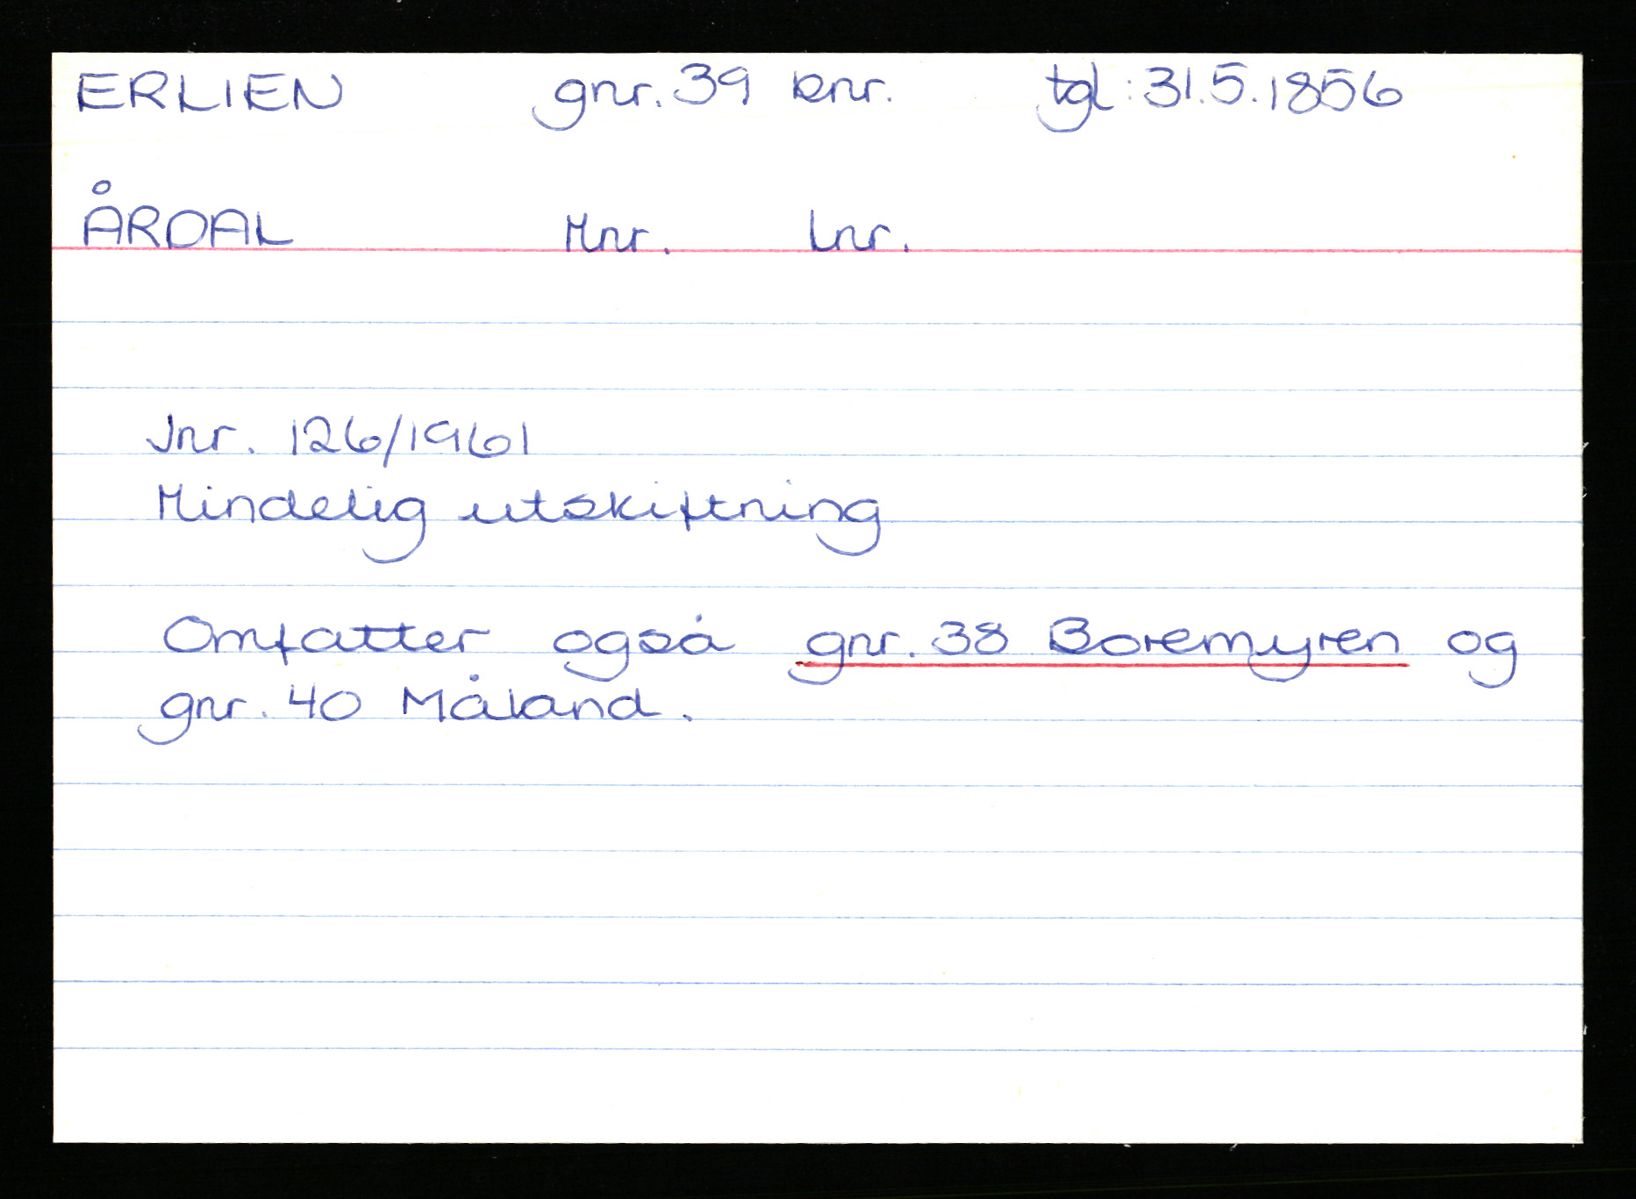 ERLIEN gnr. 39 bnr. tgl: 31.5.1856
ÅRDAL Mnr. Lnr.
Jnr. 126/1961
Mindelig utskiftning
Omfatter også gnr. 38 Boremyren og
gnr. 40 Måland.